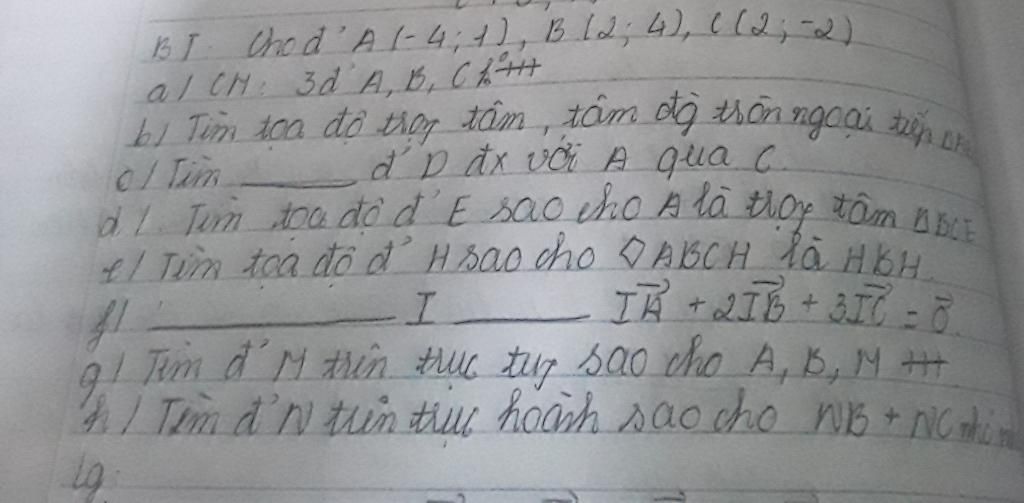 BT. Cho đ' A(-4;1), B(2;4), C(2;-2)
a/ CM: 3đ' A, B, C k° +++
b/ Tìm tọa độ trọg tâm, tâm đg tròn ngoại tiếp ΔABC
c/ Tìm ______ đ' D đx với A qua C.
d/. Tìm tọa độ đ' E sao cho A là trọg tâm ΔBCE
e/ Tìm tọa độ đ' H sao cho ◇ABCH là HBH.
f/ ____________ I ______ IA + 2IB + 3IC = 0.
g/ Tìm đ' M trên trục tug sao cho A, B, M +++
h/ Tìm đ' N trên trục hoành sao cho NB + NC nhỏ